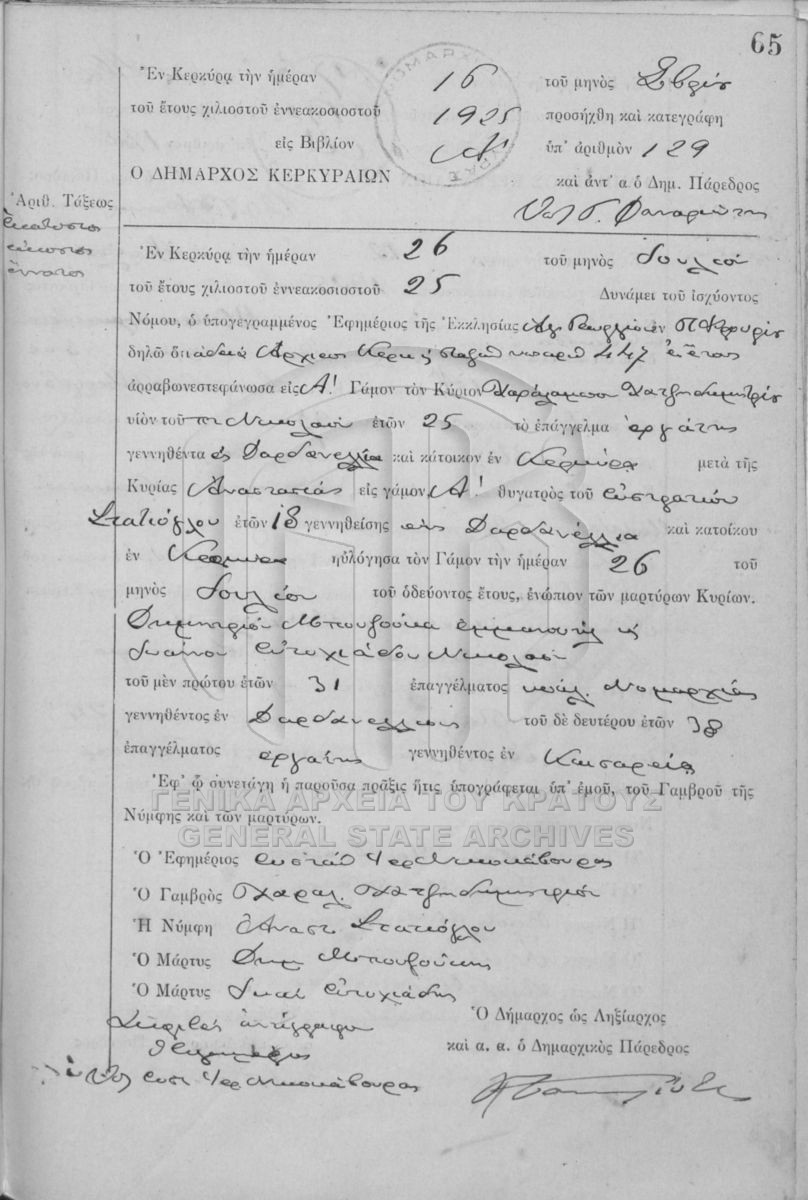 65
Ἐν Κερκύρᾳ τὴν ἡμέραν 16 τοῦ μηνὸς
τοῦ ἔτους χιλιοστοῦ ἐννεακοσιοστοῦ 1925 προσήχθη καὶ κατεγράφη
εἰς Βιβλίον Α! ὑπ' ἀριθμὸν 129
Ο ΔΗΜΑΡΧΟΣ ΚΕΡΚΥΡΑΙΩΝ καὶ ἀντ' α ὁ Δημ. Πάρεδρος
Ἀριθ. Τάξεως
ἑκατοστὸς
εἰκοστὸς
ἔννατος
Ἐν Κερκύρᾳ τὴν ἡμέραν 26 τοῦ μηνὸς Ἰουλίου
τοῦ ἔτους χιλιοστοῦ ἐννεακοσιοστοῦ 25 Δυνάμει τοῦ ἰσχύοντος
Νόμου, ὁ ὑπογεγραμμένος Ἐφημέριος τῆς Ἐκκλησίας Ἁγ. Γεωργίου ἐν
δηλῶ ὅτι ἀδείᾳ 447
ἀρραβωνεστεφάνωσα εἰς Α! Γάμον τὸν Κύριον Χαράλαμπον Χατζηδημητρίου
υἱὸν τοῦ Νικολάου ἐτῶν 25 τὸ ἐπάγγελμα ἐργάτης
γεννηθέντα εἰς Δαρδανέλλια καὶ κάτοικον ἐν Κερκύρᾳ μετὰ τῆς
Κυρίας Ἀναστασίας εἰς γάμον Α! θυγατρὸς τοῦ Εὐστρατίου
Στατιόγλου ἐτῶν 18 γεννηθείσης εἰς Δαρδανέλλια καὶ κατοίκου
ἐν Κερκύρᾳ ηὐλόγησα τὸν Γάμον τὴν ἡμέραν 26 τοῦ
μηνὸς Ἰουλίου τοῦ ὁδεύοντος ἔτους, ἐνώπιον τῶν μαρτύρων Κυρίων.
Δημητρίου Μπουζούκα Ἐμμανουὴλ κ
Ἰωάννου Εὐτυχιάδου Νικολάου
τοῦ μὲν πρώτου ἐτῶν 31 ἐπαγγέλματος ὑπάλ. Νομαρχίας
γεννηθέντος ἐν Δαρδανελλίοις τοῦ δὲ δευτέρου ἐτῶν 38
ἐπαγγέλματος ἐργάτης γεννηθέντος ἐν Καισαρείᾳ
Ἐφ' ᾧ συνετάγη ἡ παροῦσα πρᾶξις ἥτις ὑπογράφεται ὑπ' ἐμοῦ, τοῦ Γαμβροῦ τῆς
Νύμφης καὶ τῶν μαρτύρων.
ΓΕΝΙΚΑ ΑΡΧΕΙΑ ΤΟΥ ΚΡΑΤΟΥΣ
GENERAL STATE ARCHIVES
Ὁ Ἐφημέριος
Ὁ Γαμβρὸς Χαραλ. Χατζηδημητρίου
Ἡ Νύμφη Ἀναστ. Στατιόγλου
Ὁ Μάρτυς Δημ Μπουζούκας
Ὁ Μάρτυς Ἰωαν Εὐτυχιάδης
Ὁ Δήμαρχος ὡς Ληξίαρχος
καὶ α. α. ὁ Δημαρχικὸς Πάρεδρος
ἀκριβὲς ἀντίγραφον